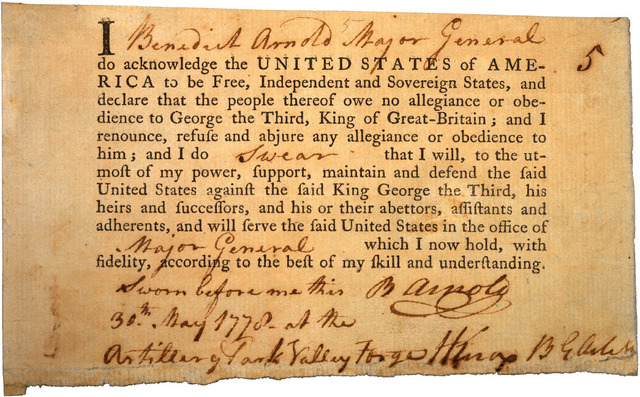 I Benedict Arnold Major General
5
do acknowledge the UNITED STATES of AME-
RICA to be Free, Independent and Sovereign States, and
declare that the people thereof owe no allegiance or obe-
dience to George the Third, King of Great-Britain; and I
renounce, refuſe and abjure any allegiance or obedience to
him; and I do Swear that I will, to the ut-
moſt of my power, ſupport, maintain and defend the ſaid
United States againſt the ſaid King George the Third, his
heirs and ſucceſſors, and his or their abettors, aſſiſtants and
adherents, and will ſerve the ſaid United States in the office of
Major General which I now hold, with
fidelity, according to the beſt of my ſkill and underſtanding.
Sworn before me this B Arnold
30th May 1778 - at the
Artillery Park Valley Forge HKnox B G Artil